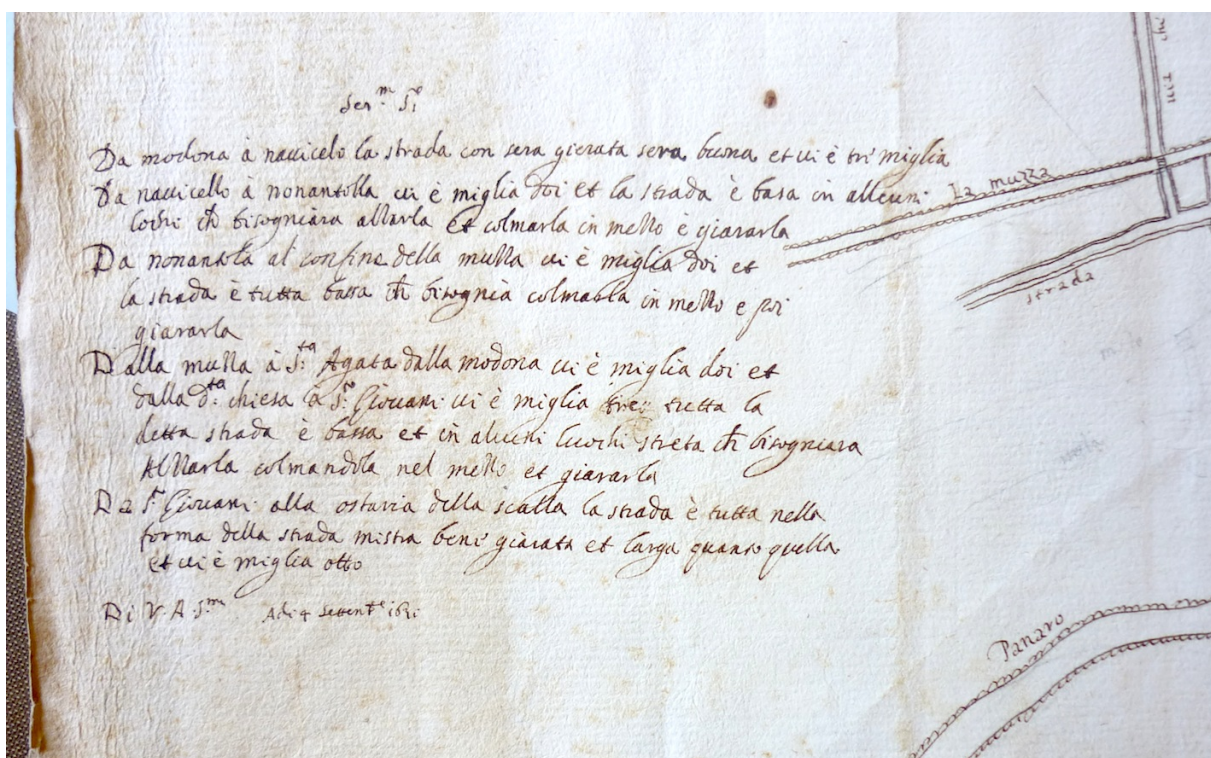 Ser.^mo S.^re
Da modona à nauicelo la strada con sera gierata sera buona et ui è tri miglia
Da nauicello à nonantolla ui è miglia doi et la strada è basa in alleuni
lochi ch bisogniara alzarla et colmarla in mezzo è giararla
Da nonantola al confine della muzza ui è miglia doi et
la strada è tutta bassa ch bisognia colmarla in mezzo e poi
giararla
Dalla muzza à S.^ta Agata dalla modona ui è miglia doi et
dalla d.^ta chiesa à S.^to Giouani ui è miglia tre tutta la
detta strada è bassa et in alcuni luochi streta ch bisogniara
Alzzarla colmandola nel mezzo et giararla
Da S.^to Giouani alla ostaria della scalla la strada è tutta nella
forma della strada mistra beni giarata et larga quanto quella
et ui è miglia otto
Di V. A. S.^ma Adi 4 settemb.^e
la muzza
strada
Panaro